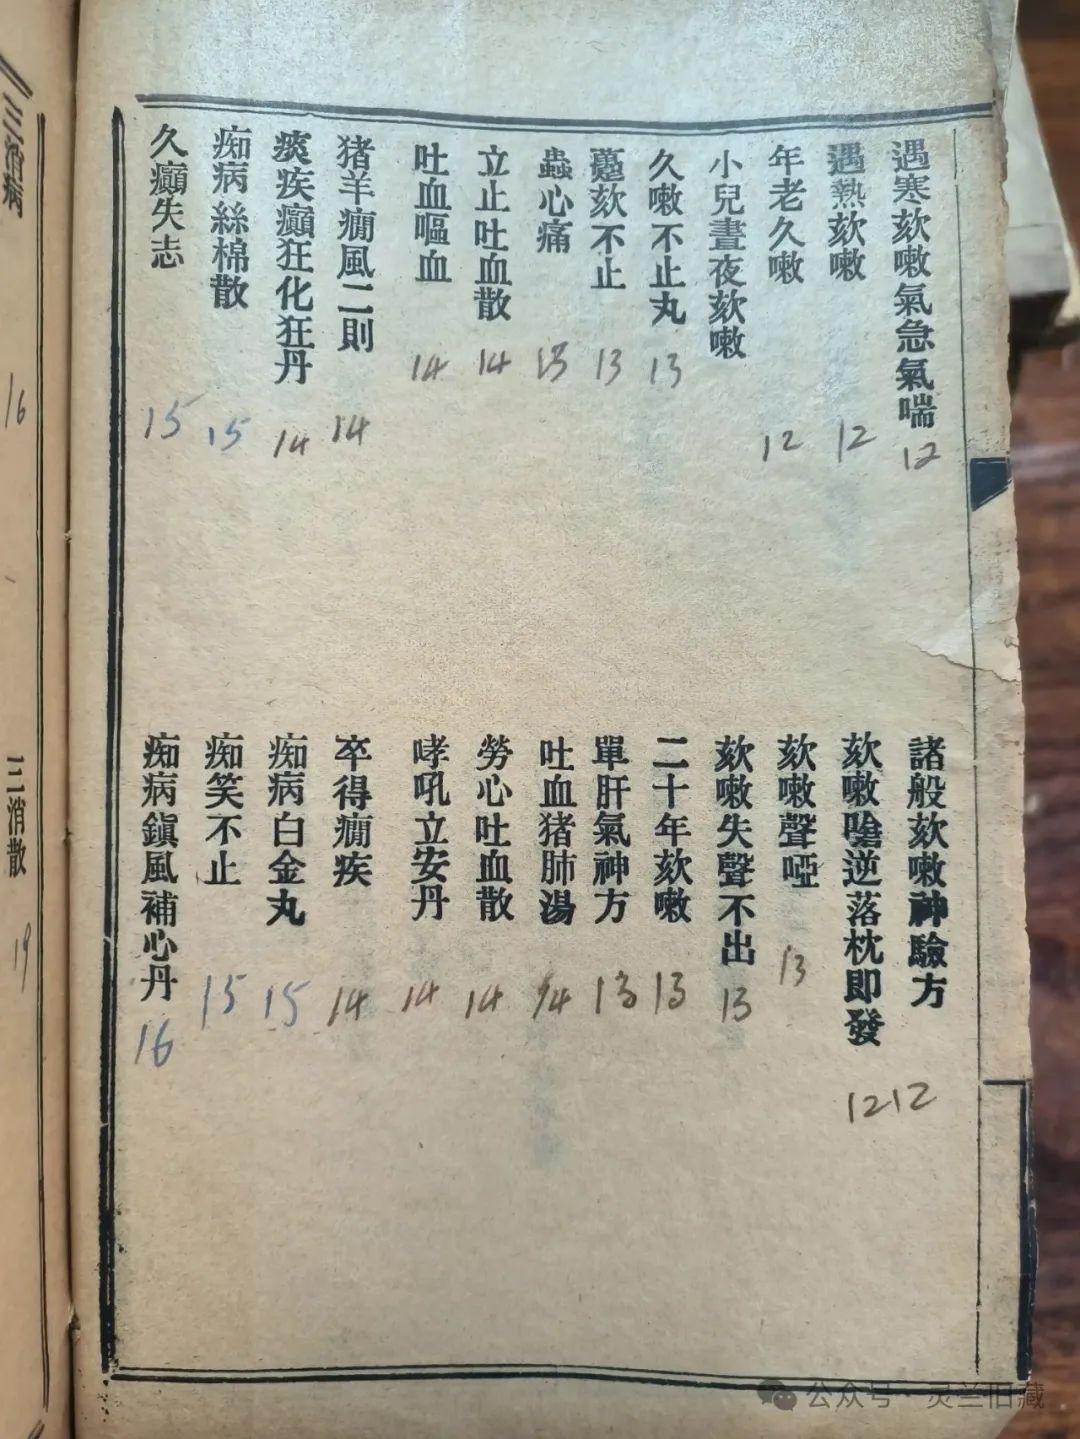 遇寒欬嗽氣急氣喘
12
遇熱欬嗽
12
年老久嗽
12
小兒晝夜欬嗽
久嗽不止丸
13
欬不止
13
蟲心痛
13
立止吐血散
14
吐血嘔血
14
猪羊癇風二則
14
痰疾癲狂化狂丹
14
痴病絲棉散
15
久癲失志
15
諸般欬嗽神驗方
12
欬嗽嗆逆落枕即發
12
欬嗽聲啞
13
欬嗽失聲不出
13
二十年欬嗽
13
單肝氣神方
13
吐血猪肺湯
14
勞心吐血散
14
哮吼立安丹
14
卒得癇疾
14
痴病白金丸
15
痴笑不止
15
痴病鎮風補心丹
16
三消病
16
三消散
19
公众号·灵兰旧藏